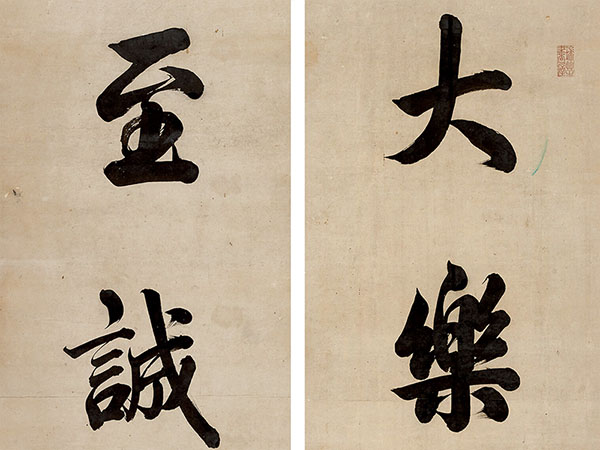 大樂
至誠